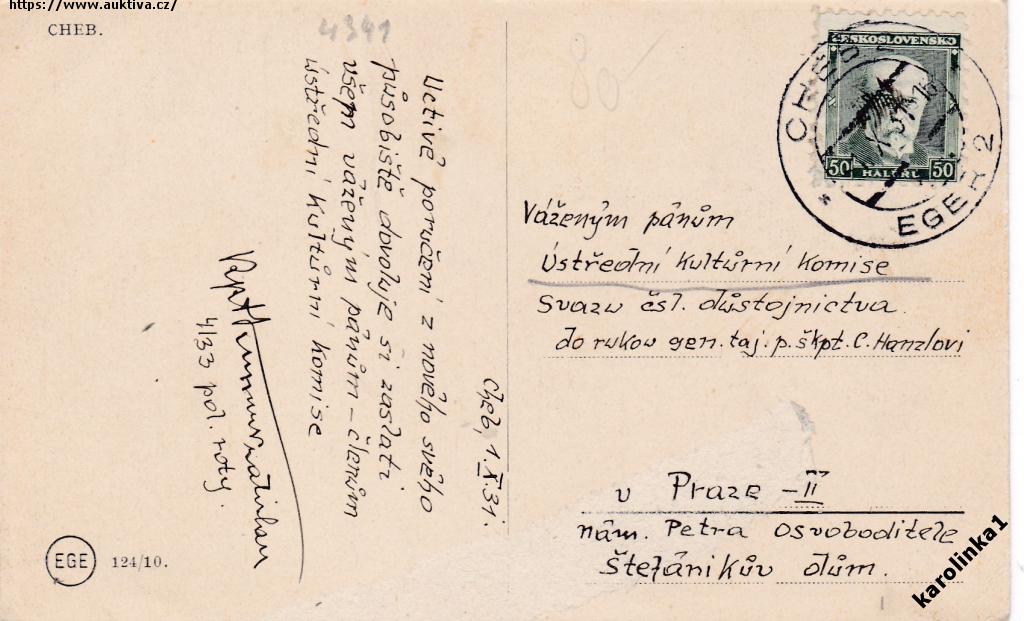 https://www.auktiva.cz/
CHEB.
4341
80
Uctivé poručení z nového svého
působiště dovoluje si zaslati
všem váženým pánům – členům
ústřední Kultůrní Komise
4/33 pol. roty.
Cheb, 1. X. 31.
EGE 124/10.
ČESKOSLOVENSKO
50 HALÉŘŮ 50
CHEB 2
EGER 2
Váženým pánům
Ústřední Kultůrní Komise
Svazu čsl. důstojnictva
do rukou gen. taj. p. škpt. C. Hanzlovi
v Praze – II
nám. Petra Osvoboditele
Štefánikův dům.
karolinka1